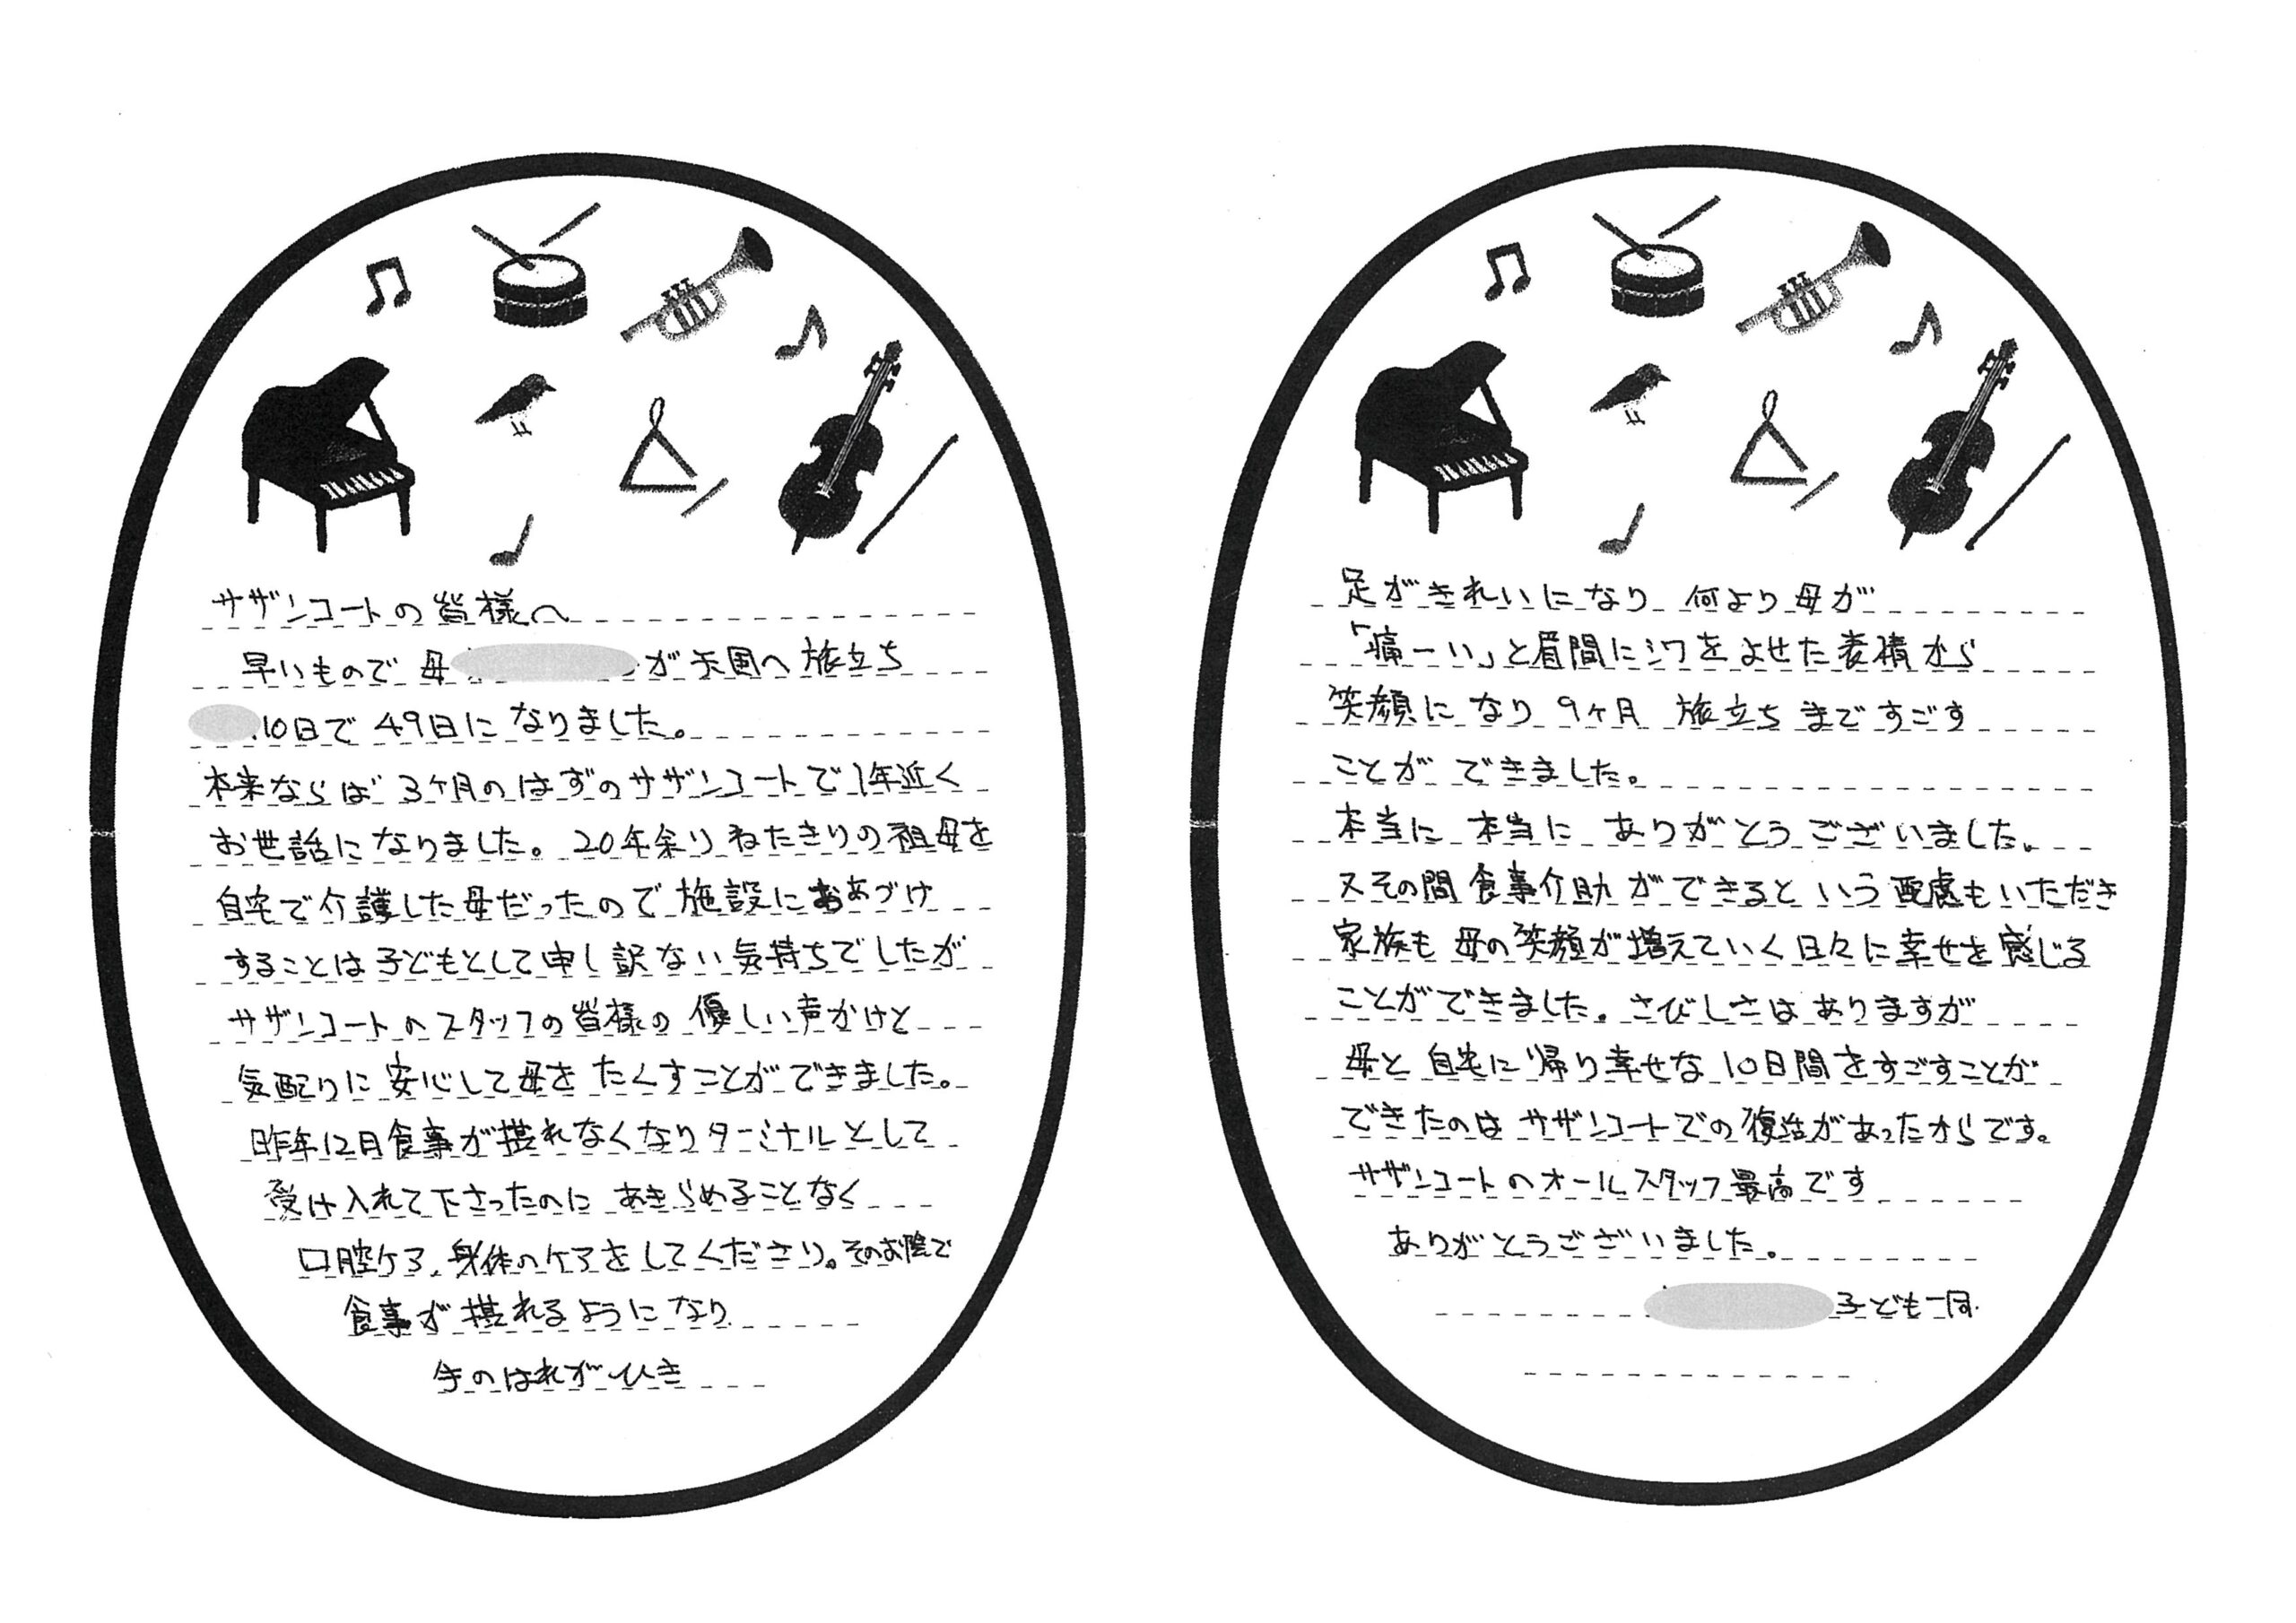 サザンコートの皆様へ
早いもので 母 が天国へ旅立ち
10日で 49日に なりました。
本来ならば 3ヶ月のはずのサザンコートで1年近く
お世話になりました。20年余り ねたきりの祖母を
自宅で介護した母だったので 施設におあづけ
することは子どもとして申し訳ない気持ちでしたが
サザンコートのスタッフの皆様の 優しい声かけと
気配りに 安心して母を たくすことができました。
昨年12月食事が摂れなくなりターミナルとして
受け入れて下さったのに あきらめることなく
口腔ケア、身体のケアをしてくださり。そのお陰で
食事が 摂れるようになり
手のはれがひき
足がきれいになり 何より母が
「痛ーい」と眉間にシワをよせた表情から
笑顔に なり 9ヶ月 旅立ち まですごす
ことが できました。
本当に 本当に ありがとう ございました。
又その間 食事介助 ができると いう 配慮もいただき
家族も 母の笑顔が増えていく日々に幸せを感じる
ことができました。さびしさは ありますが
母と 自宅に帰り幸せな 10日間をすごすことが
できたのは サザンコートでの復活があったからです。
サザンコートのオールスタッフ最高です
ありがとうございました。
子ども一同